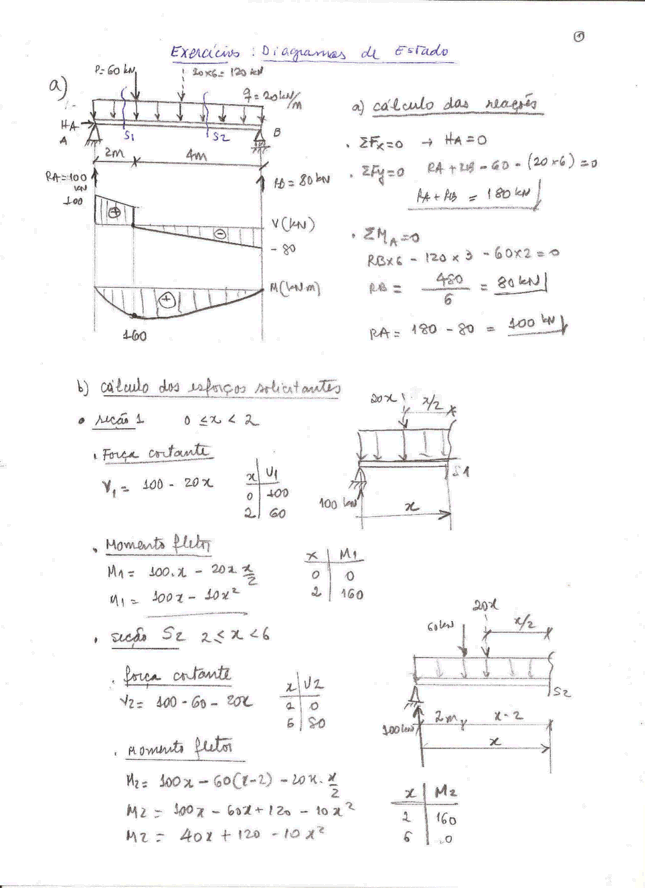 ①
Exercícios: Diagramas de Estado
a)
P=60kN
20x6=120kN
q=20kN/m
HA
A
S1
S2
B
2m
4m
RA=100 kN
RB=80kN
100
+
V(kN)
-
-80
+
M(kNm)
160
a) cálculo das reações
. ΣFx=0 → HA=0
. ΣFy=0 RA+RB-60-(20x6)=0
RA+RB = 180kN
. ΣMA=0
RBx6-120x3-60x2=0
RB = 480/6 = 80kN
RA = 180-80 = 100kN
b) cálculo dos esforços solicitantes
• seção 1 0 ≤ x < 2
. Força cortante
V1 = 100 - 20x
x V1
0 100
2 60
20x
x/2
S1
100 kN
x
. Momento fletor
M1 = 100.x - 20x.x/2
M1 = 100x - 10x²
x M1
0 0
2 160
. seção S2 2 ≤ x < 6
. força cortante
V2 = 100-60-20x
x V2
2 0
6 80
60kN
20x
x/2
S2
100kN
2m
x-2
x
. Momento fletor
M2 = 100x - 60(x-2) - 20x.x/2
M2 = 100x - 60x + 120 - 10x²
M2 = 40x + 120 - 10x²
x M2
2 160
6 0